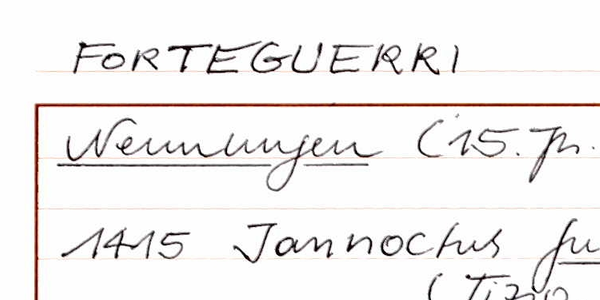 FORTEGUERRI
Nennungen (15. Jh.
1415 Jannoctus
(Tizio